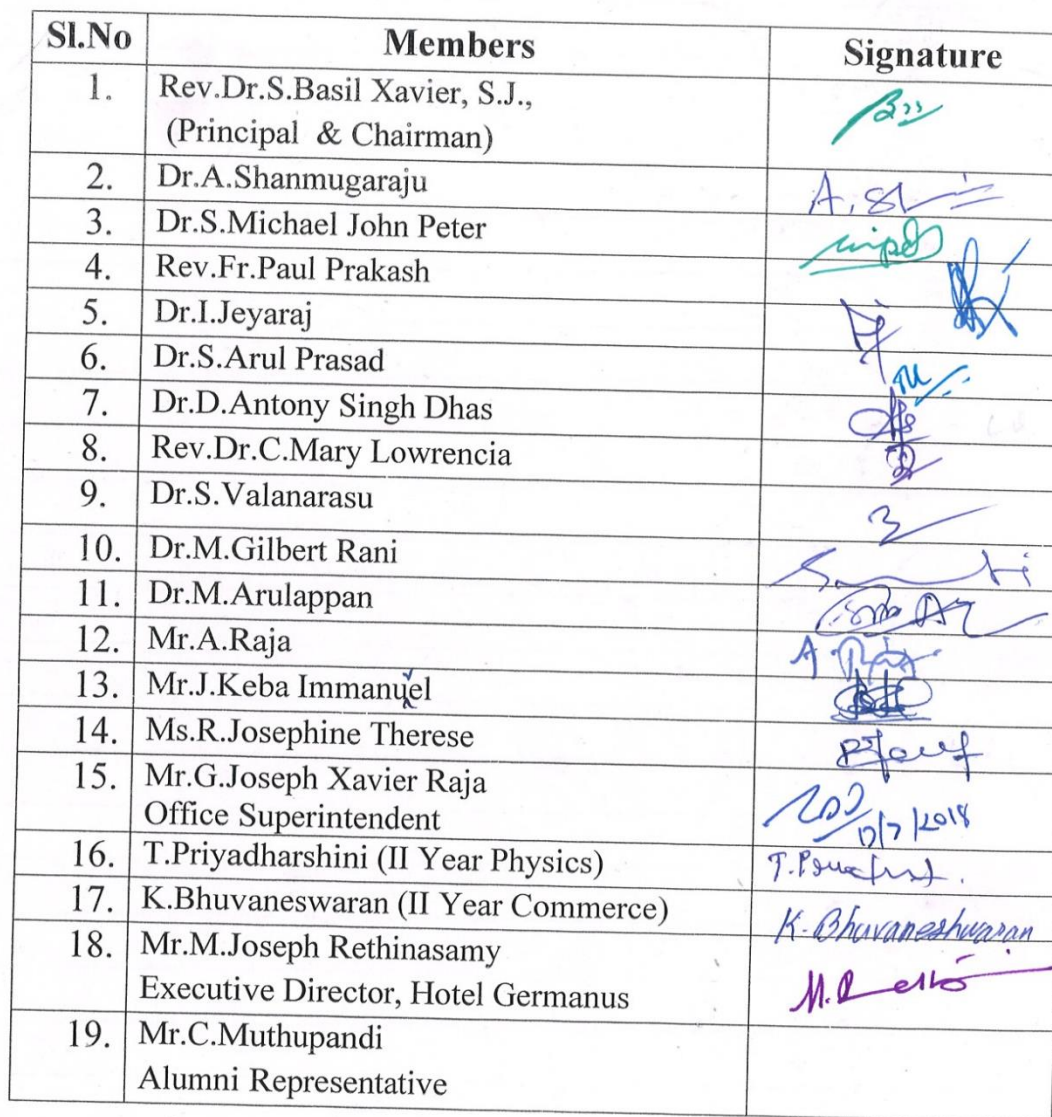 Sl.No Members Signature
1. Rev.Dr.S.Basil Xavier, S.J.,
(Principal & Chairman)
2. Dr.A.Shanmugaraju
3. Dr.S.Michael John Peter
4. Rev.Fr.Paul Prakash
5. Dr.I.Jeyaraj
6. Dr.S.Arul Prasad
7. Dr.D.Antony Singh Dhas
8. Rev.Dr.C.Mary Lowrencia
9. Dr.S.Valanarasu
10. Dr.M.Gilbert Rani
11. Dr.M.Arulappan
12. Mr.A.Raja
13. Mr.J.Keba Immanuel
14. Ms.R.Josephine Therese
15. Mr.G.Joseph Xavier Raja
Office Superintendent
16. T.Priyadharshini (II Year Physics)
17. K.Bhuvaneswaran (II Year Commerce) K. Bhuvaneshwaran
18. Mr.M.Joseph Rethinasamy
Executive Director, Hotel Germanus
19. Mr.C.Muthupandi
Alumni Representative